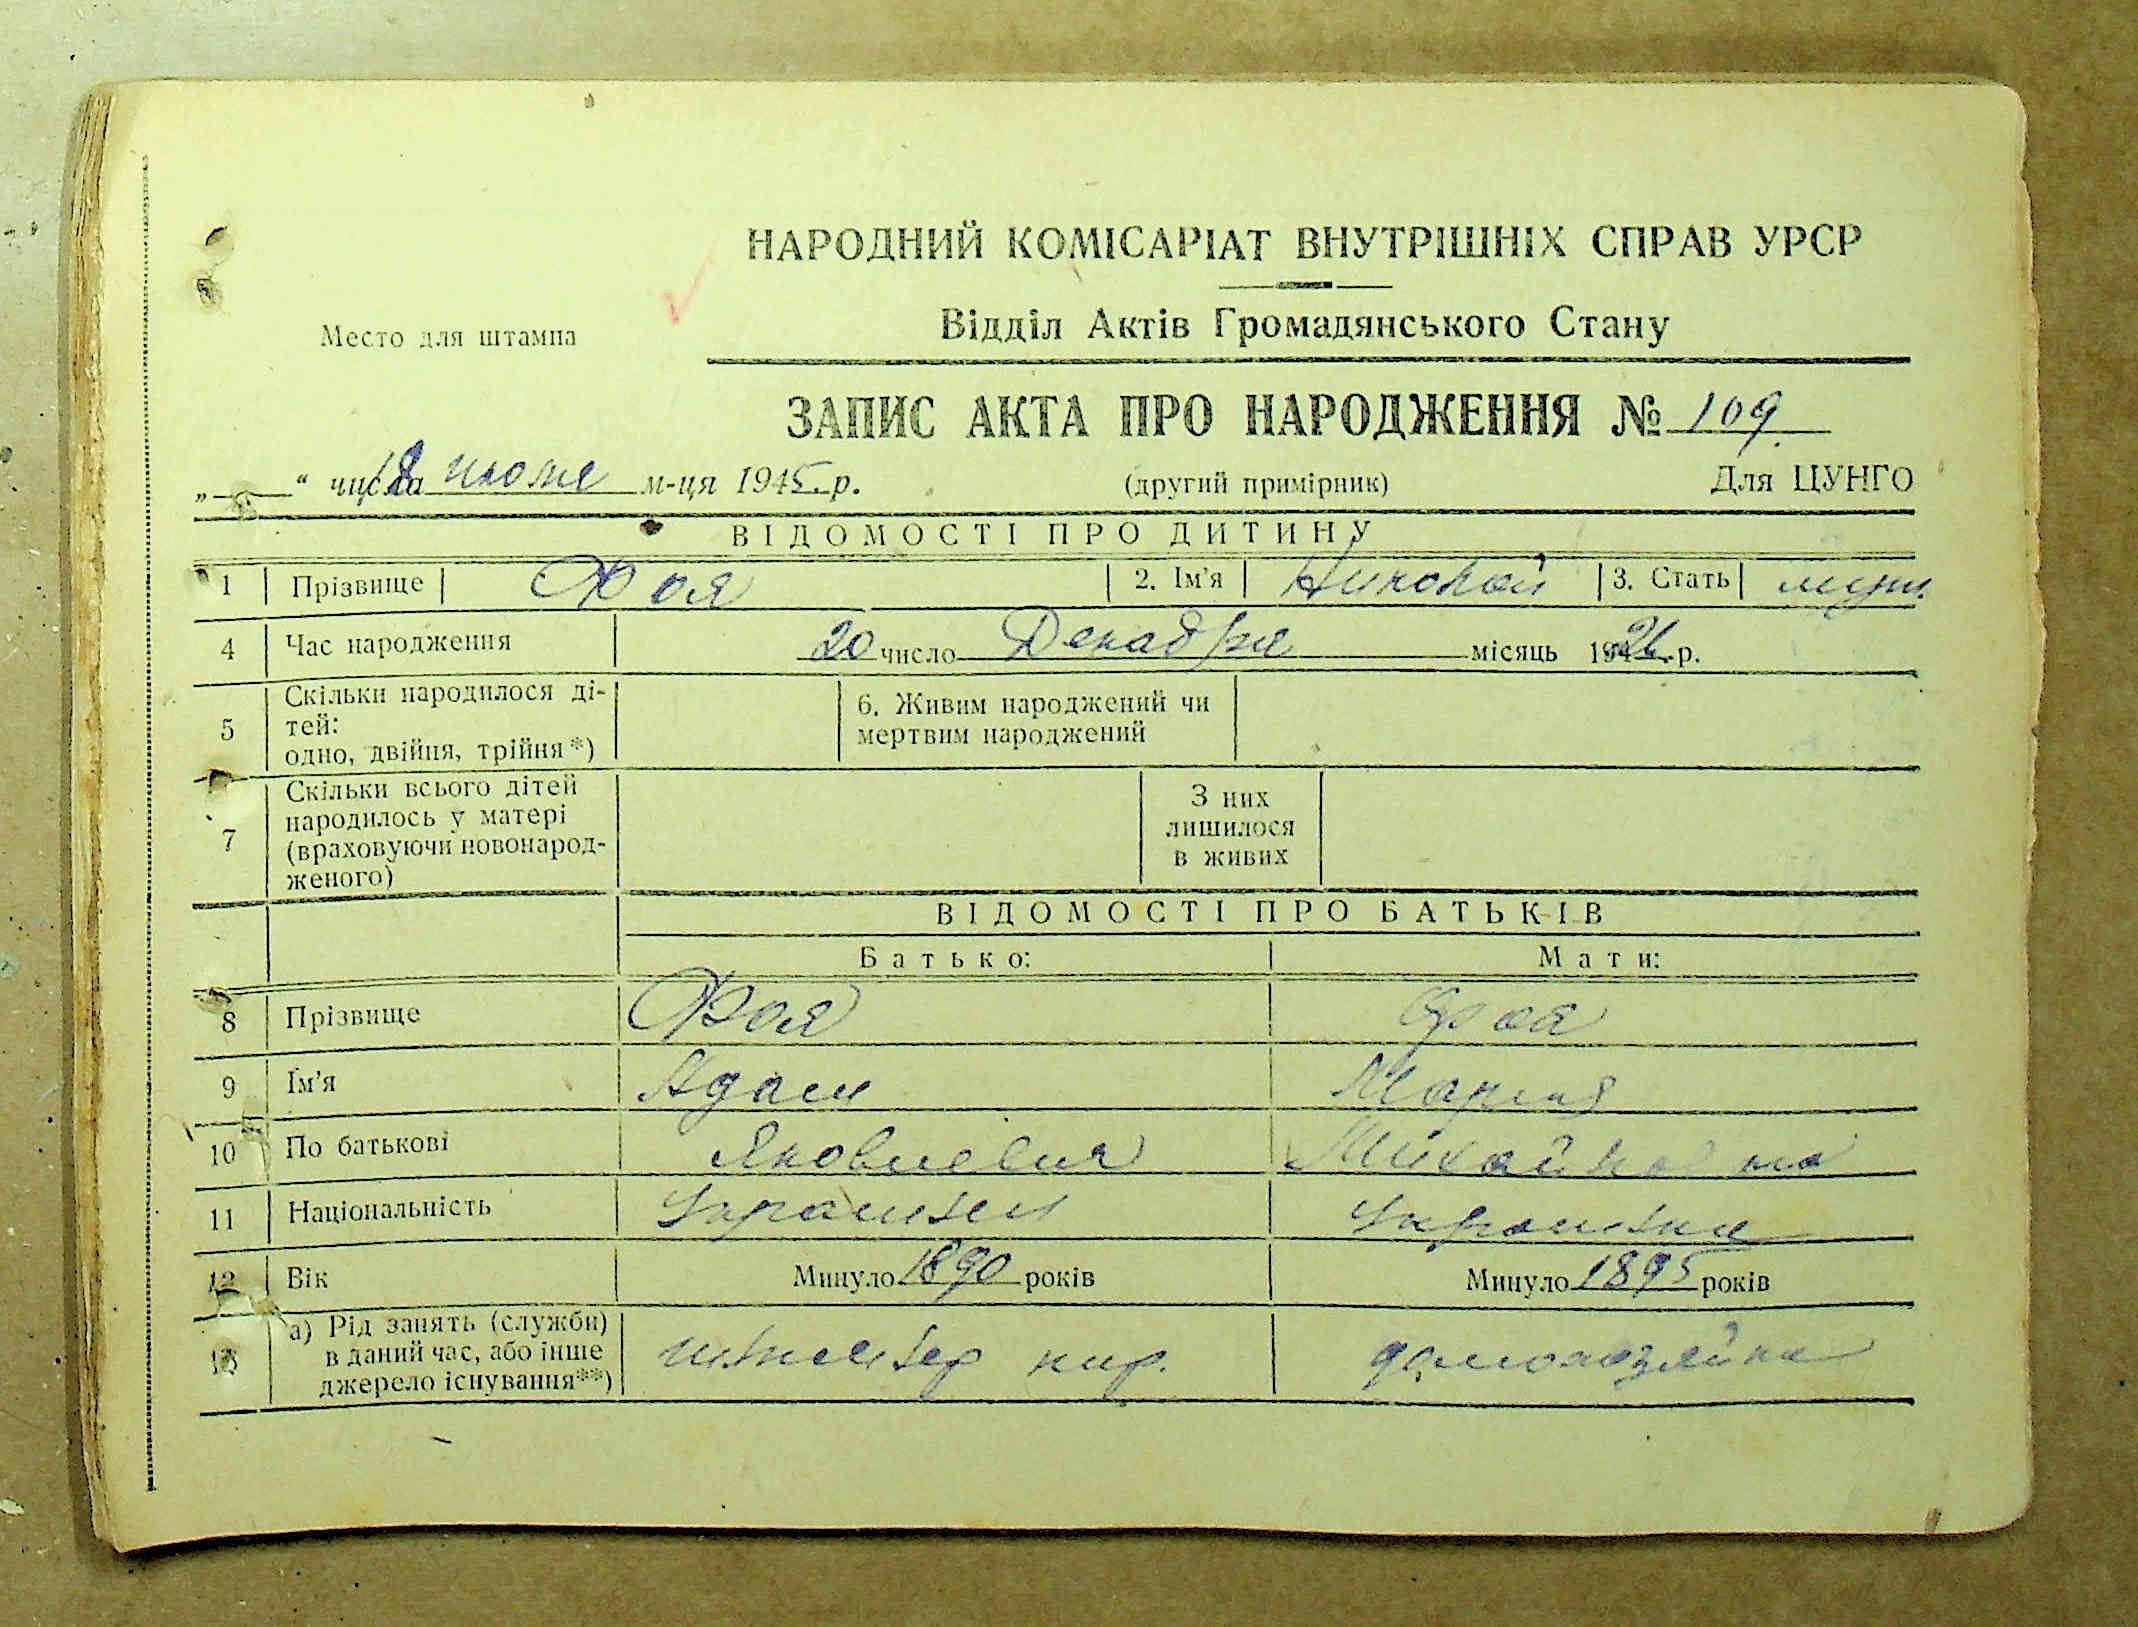 НАРОДНИЙ КОМІСАРІАТ ВНУТРІШНІХ СПРАВ УРСР
Место для штампа
Відділ Актів Громадянського Стану
ЗАПИС АКТА ПРО НАРОДЖЕННЯ № 109
„ “ числа 18 июня м-ця 1945 р. (другий примірник) Для ЦУНГО
ВІДОМОСТІ ПРО ДИТИНУ
1 Прізвище Фоя 2. Ім'я Николай 3. Стать муж.
4 Час народження 20 число Декабря місяць 1926 р.
5 Скільки народилося ді-
тей:
одно, двійня, трійня*)
6. Живим народжений чи
мертвим народжений
7 Скільки всього дітей
народилось у матері
(враховуючи новонарод-
женого)
З них
лишилося
в живих
ВІДОМОСТІ ПРО БАТЬКІВ
Батько: Мати:
8 Прізвище Фоя Фоя
9 Ім'я Адам Мария
10 По батькові Михайловна
11 Національність украинец украинка
12 Вік Минуло 1890 років Минуло 1895 років
13 а) Рід занять (служби)
в даний час, або інше
джерело існування**)
домохозяйка